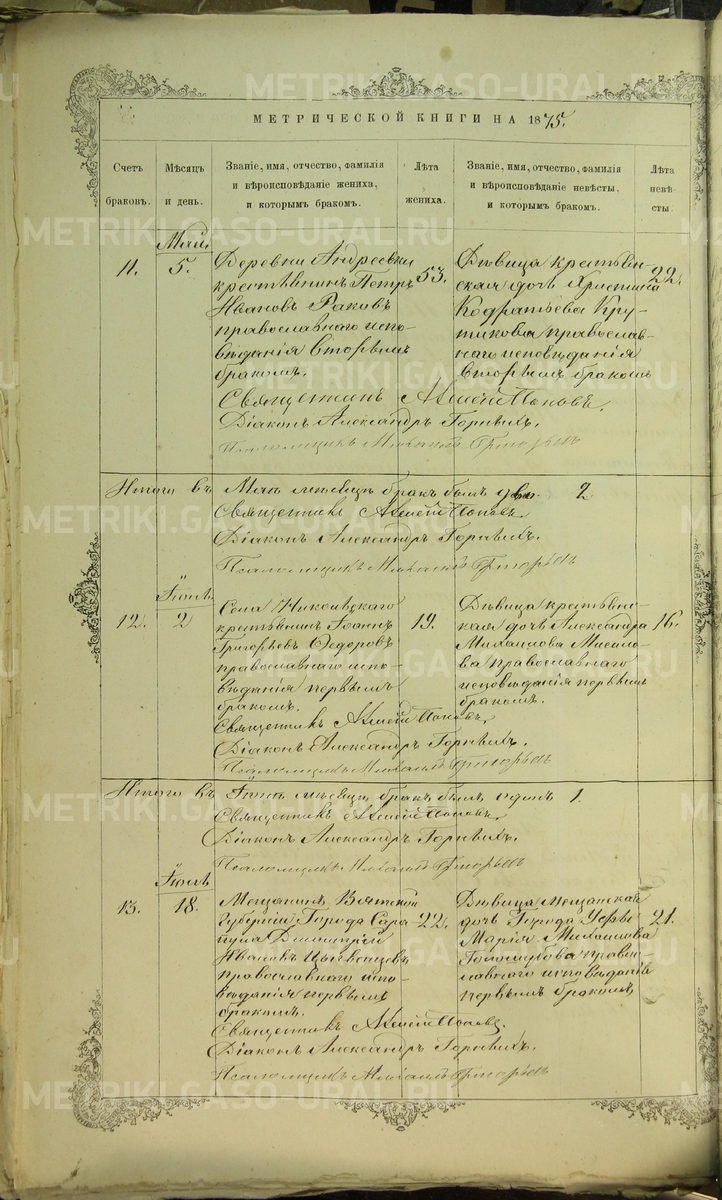 МЕТРИЧЕСКОЙ КНИГИ НА 1875.
Счетъ браковъ.
Мѣсяцъ и день.
Званіе, имя, отчество, фамилія
и вѣроисповѣданіе жениха,
и которымъ бракомъ.
Лѣта жениха.
Званіе, имя, отчество, фамилія
и вѣроисповѣданіе невѣсты,
и которымъ бракомъ.
Лѣта невѣсты.
Май.
11.
5.
Деревни Андреевки
крестьянинъ Петръ
Ивановъ Раковъ
православнаго испо-
вѣданія вторымъ
бракомъ.
53.
Дѣвица крестьян-
ская дочь Христина
Кодратьева Кру-
тикова православ-
наго исповѣданія
вторымъ бракомъ
22.
Священникъ Алексій Поповъ.
Діаконъ Александръ Горныхъ.
Псаломщикъ Михаилъ Григорьевъ
Итого въ Маѣ мѣсяцѣ бракъ былъ 2
Священникъ Алексій Поповъ.
Діаконъ Александръ Горныхъ.
Псаломщикъ Михаилъ Григорьевъ
Іюнь.
12.
2
Села Николаевскаго
крестьянинъ Іоаннъ
Григорьевъ Ѳедоровъ
православнаго испо-
вѣданія первымъ
бракомъ.
19.
Дѣвица крестьянс-
кая дочь Александра
Михаилова
православнаго
исповѣданія первымъ
бракомъ.
16.
Священникъ Алексій Поповъ.
Діаконъ Александръ Горныхъ.
Псаломщикъ Михаилъ Григорьевъ
Итого въ Іюнѣ мѣсяцѣ бракъ былъ одинъ 1.
Священникъ Алексій Поповъ.
Діаконъ Александръ Горныхъ.
Псаломщикъ Михаилъ Григорьевъ
Іюль
13.
18.
Мещанинъ Вятской
Губерніи Города Сара-
пула Димитрій
Ивановъ
православнаго испо-
вѣданія первымъ
бракомъ.
22.
Дѣвица Мещанская
дочь Города Уфы
Марія Михаилова
Голоshубова право-
славнаго исповѣданія
первымъ бракомъ
21.
Священникъ Алексій Поповъ.
Діаконъ Александръ Горныхъ.
Псаломщикъ Михаилъ Григорьевъ
METRIKI.GASO-URAL.RU